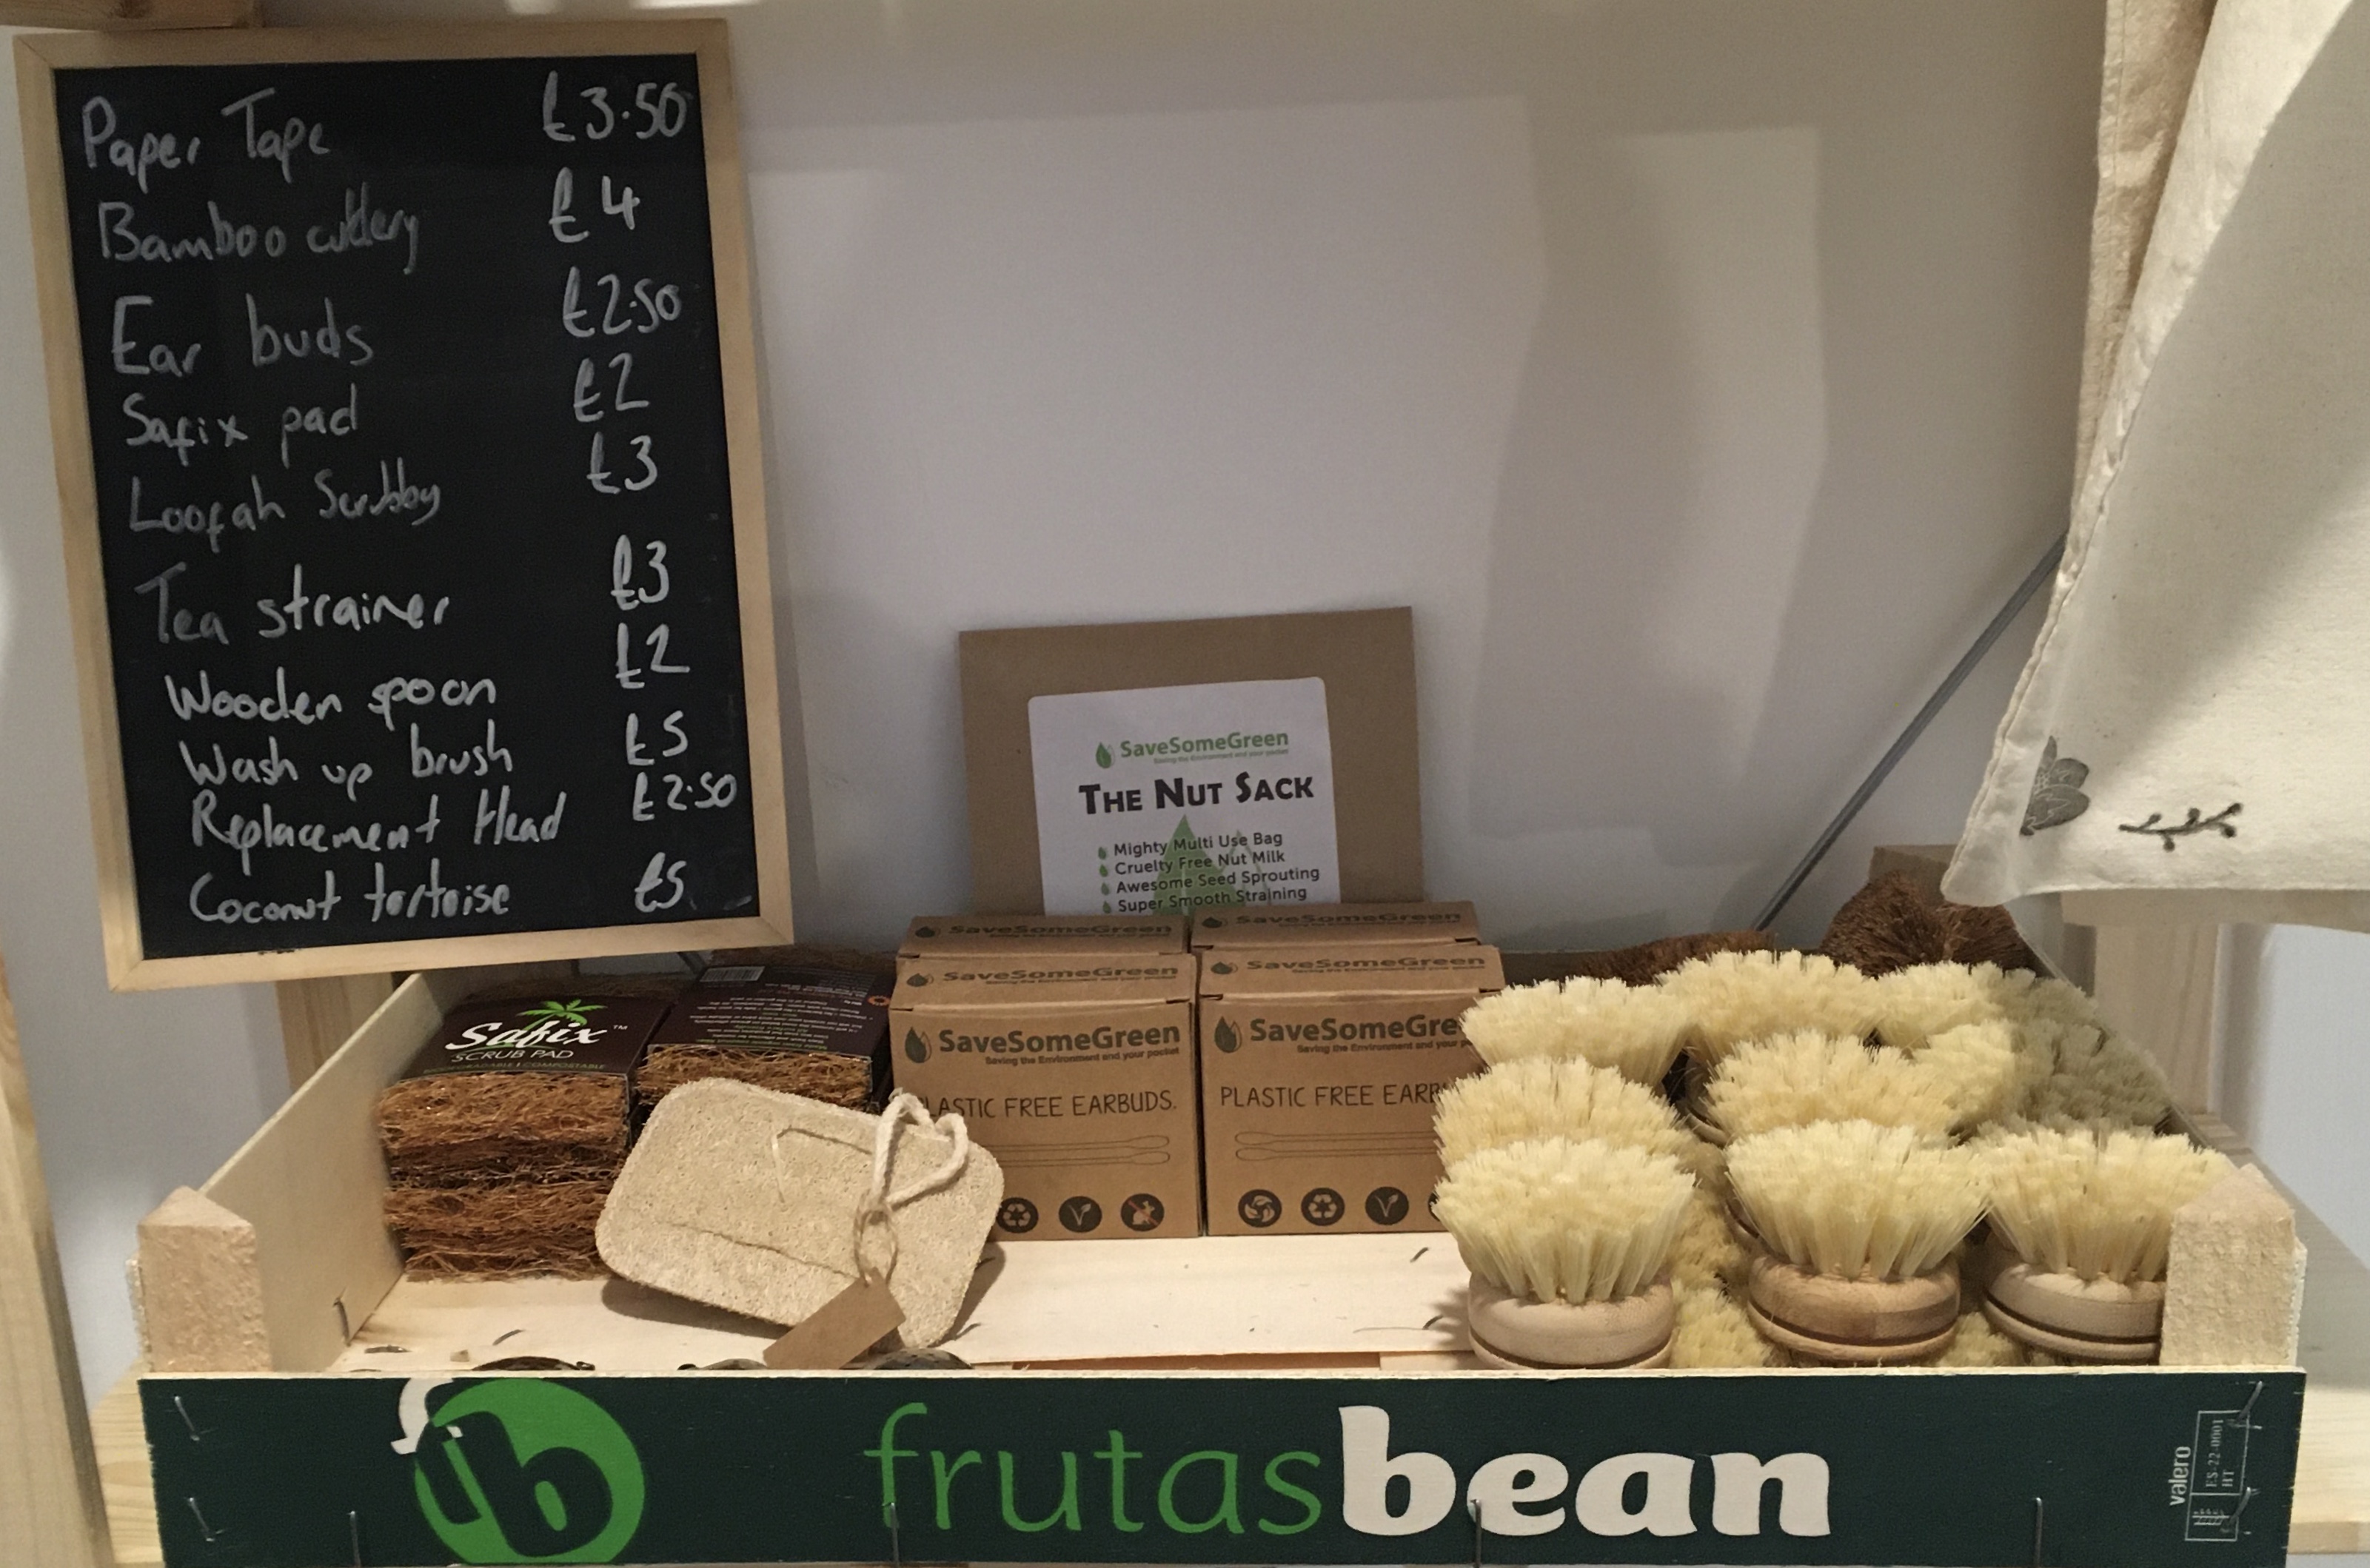 Paper Tape £3.50
Bamboo cutlery £4
Ear buds £2.50
Safix pad £2
Loofah Scrubby £3
Tea strainer £3
Wooden spoon £2
Wash up brush £5
Replacement Head £2.50
Coconut tortoise £5
SaveSomeGreen
Saving the Environment and your pocket
THE NUT SACK
Mighty Multi Use Bag
Cruelty Free Nut Milk
Awesome Seed Sprouting
Super Smooth Straining
SaveSomeGreen
SaveSomeGreen
SaveSomeGreen
Saving the Environment and your pocket
SaveSomeGreen
Saving the Environment and your pocket
Safix™
SCRUB PAD
SaveSomeGreen
Saving the Environment and your pocket
LASTIC FREE EARBUDS.
SaveSomeGre
Saving the Environment and your pocket
PLASTIC FREE EARB
V
V
b
frutasbean
valero
ES-22-0001
HT